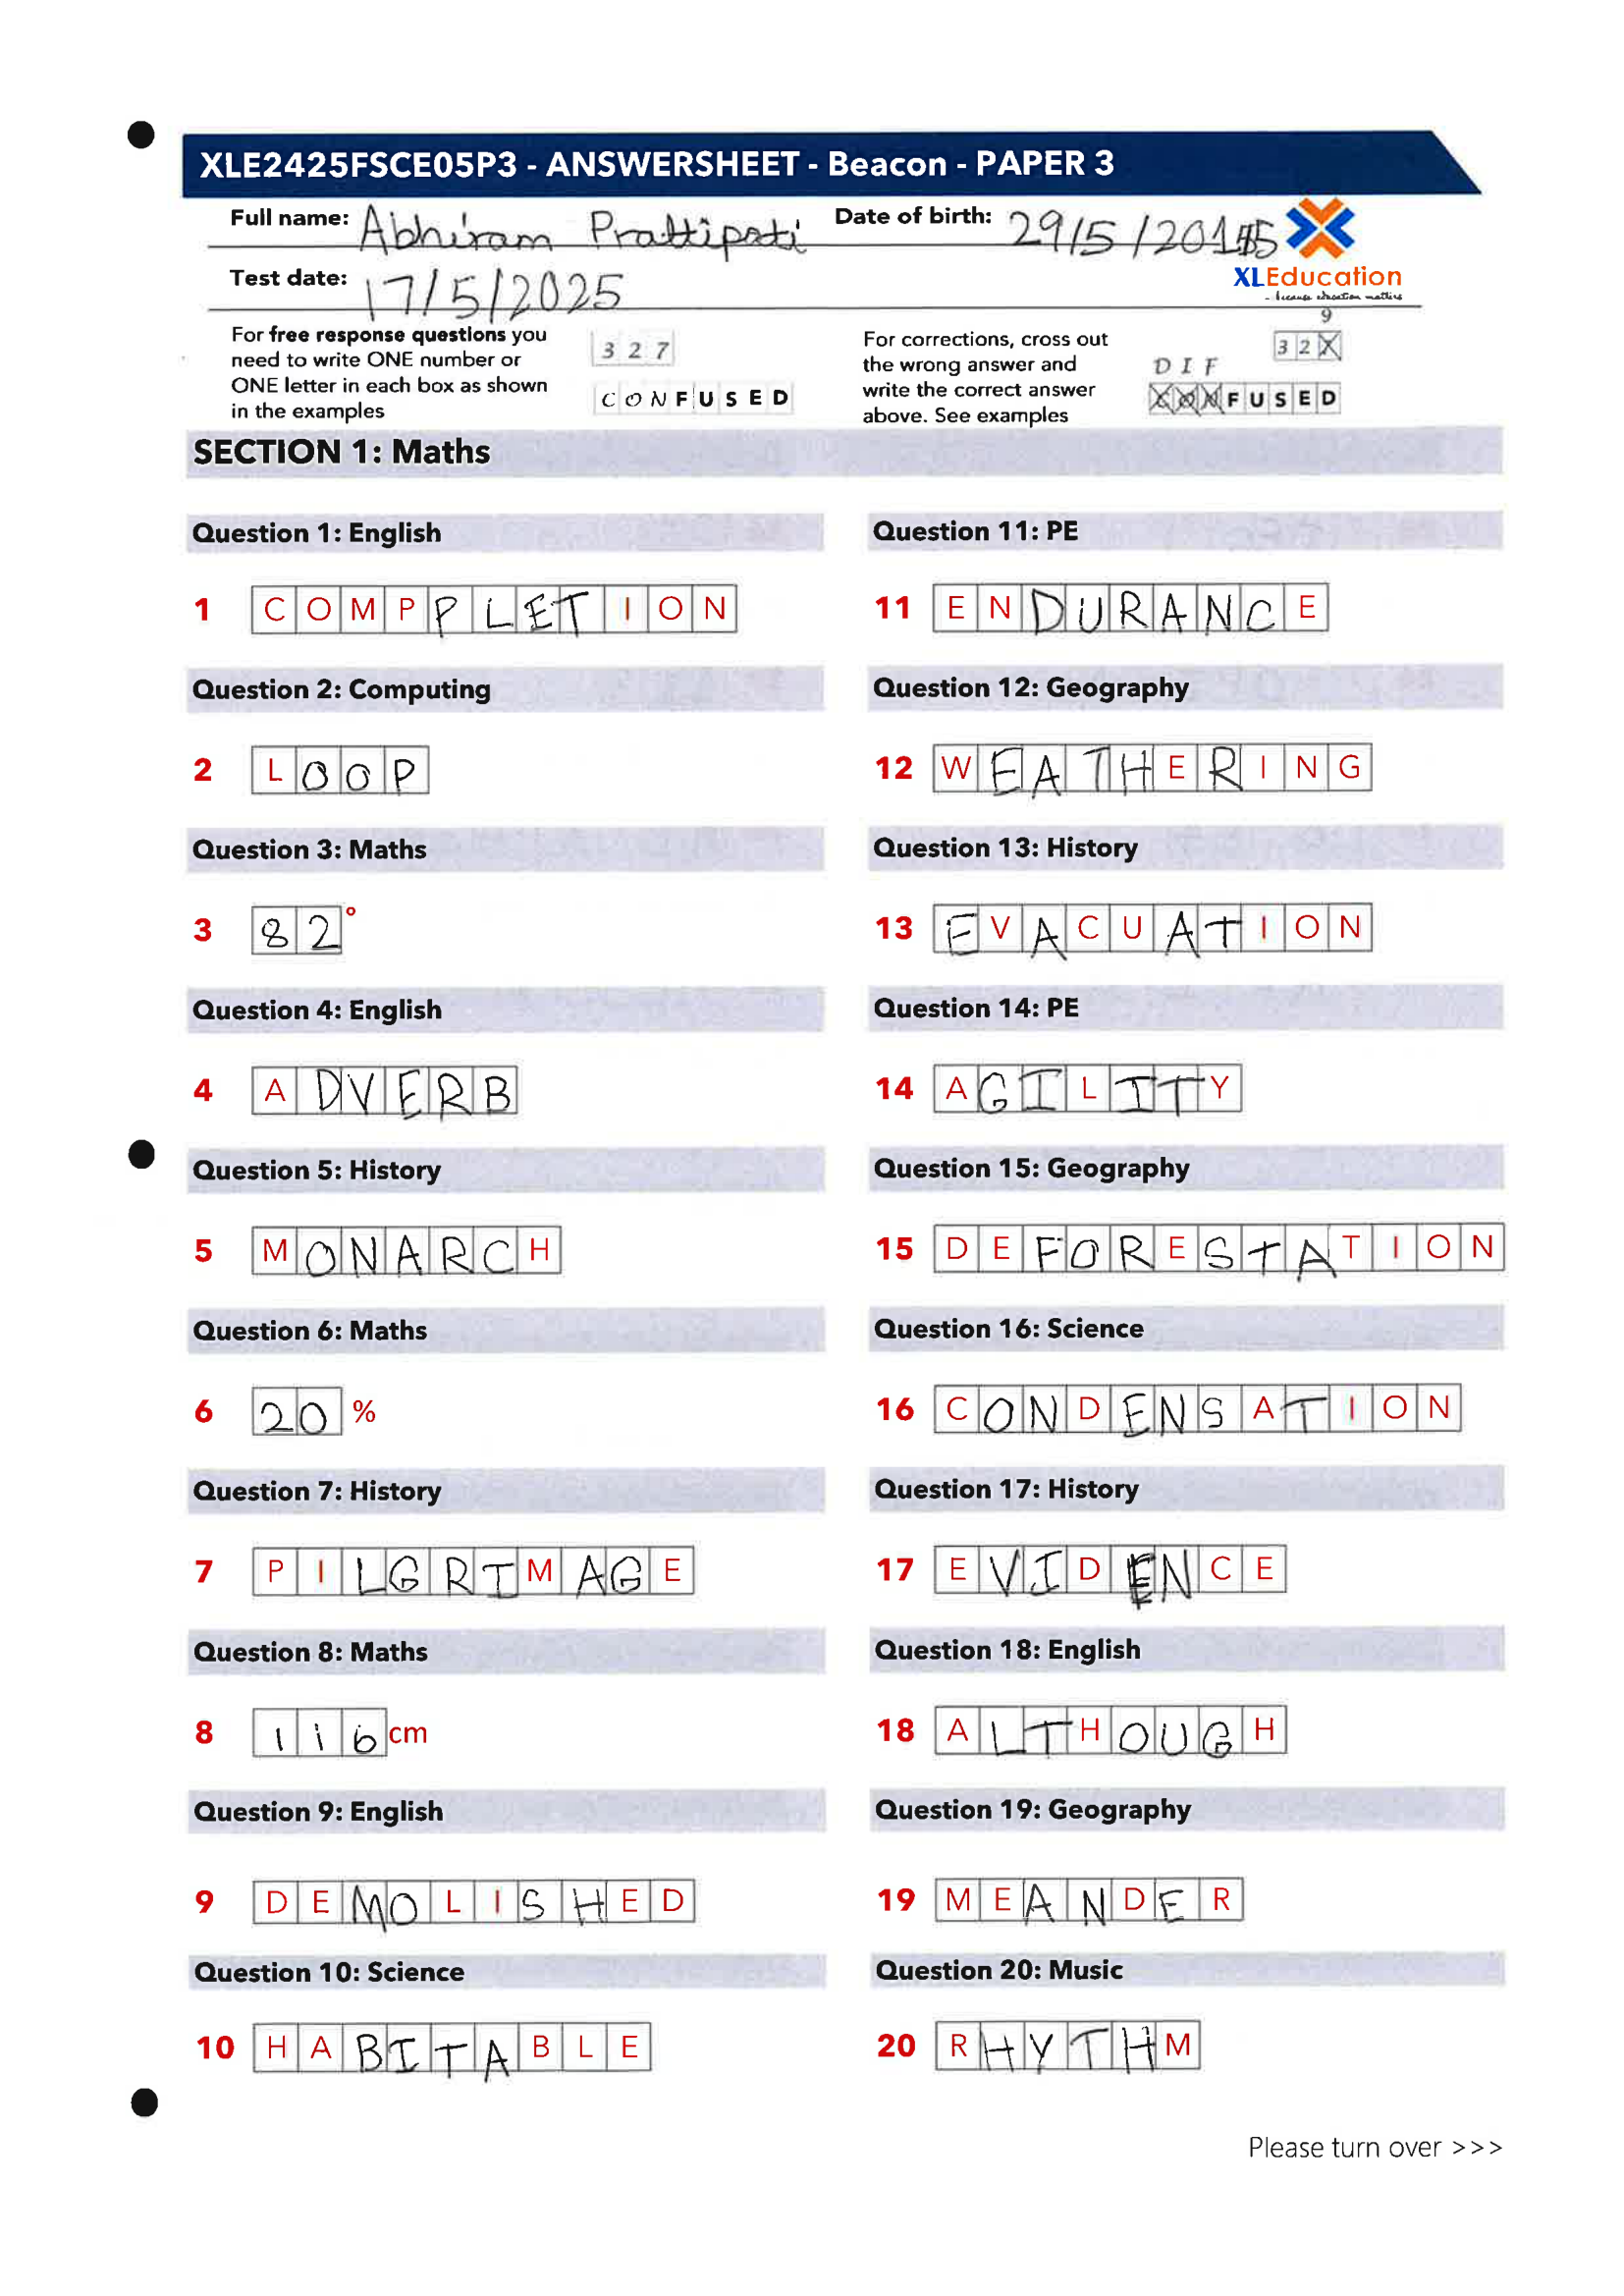 XLE2425FSCE05P3 - ANSWERSHEET - Beacon - PAPER 3
Full name: Abhiram Prattipati Date of birth: 29/5/2015
Test date: 17/5/2025
XLEducation
- because education matters
For free response questions you
need to write ONE number or
ONE letter in each box as shown
in the examples
3 2 7
C O N F U S E D
For corrections, cross out
the wrong answer and
write the correct answer
above. See examples
9
3 2 X
D I F
F U S E D
SECTION 1: Maths
Question 1: English
1 C O M P P L E T I O N
Question 2: Computing
2 L O O P
Question 3: Maths
3 8 2 °
Question 4: English
4 A D V E R B
Question 5: History
5 M O N A R C H
Question 6: Maths
6 2 0 %
Question 7: History
7 P I L G R I M A G E
Question 8: Maths
8 1 1 6 cm
Question 9: English
9 D E M O L I S H E D
Question 10: Science
10 H A B I T A B L E
Question 11: PE
11 E N D U R A N C E
Question 12: Geography
12 W E A T H E R I N G
Question 13: History
13 E V A C U A T I O N
Question 14: PE
14 A G I L I T Y
Question 15: Geography
15 D E F O R E S T A T I O N
Question 16: Science
16 C O N D E N S A T I O N
Question 17: History
17 E V I D E N C E
Question 18: English
18 A L T H O U G H
Question 19: Geography
19 M E A N D E R
Question 20: Music
20 R H Y T H M
Please turn over >>>